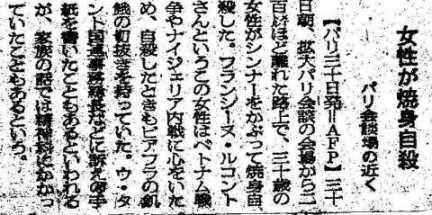 女性が焼身自殺
パリ会談場の近く
【パリ三十日発＝ＡＦＰ】三十
日朝、拡大パリ会談の会場から二
百㍍ほど離れた路上で、三十歳の
女性がシンナーをかぶって焼身自
殺した。フランシーヌ・ルコント
さんというこの女性はベトナム戦
争やナイジェリア内戦に心をいた
め、自殺したときもビアフラの飢
餓の切抜きを持っていた。ウ・タ
ント国連事務総長などに訴えの手
紙を書いたこともあるといわれる
が、家族の話では精神科にかかっ
ていたこともあるという。